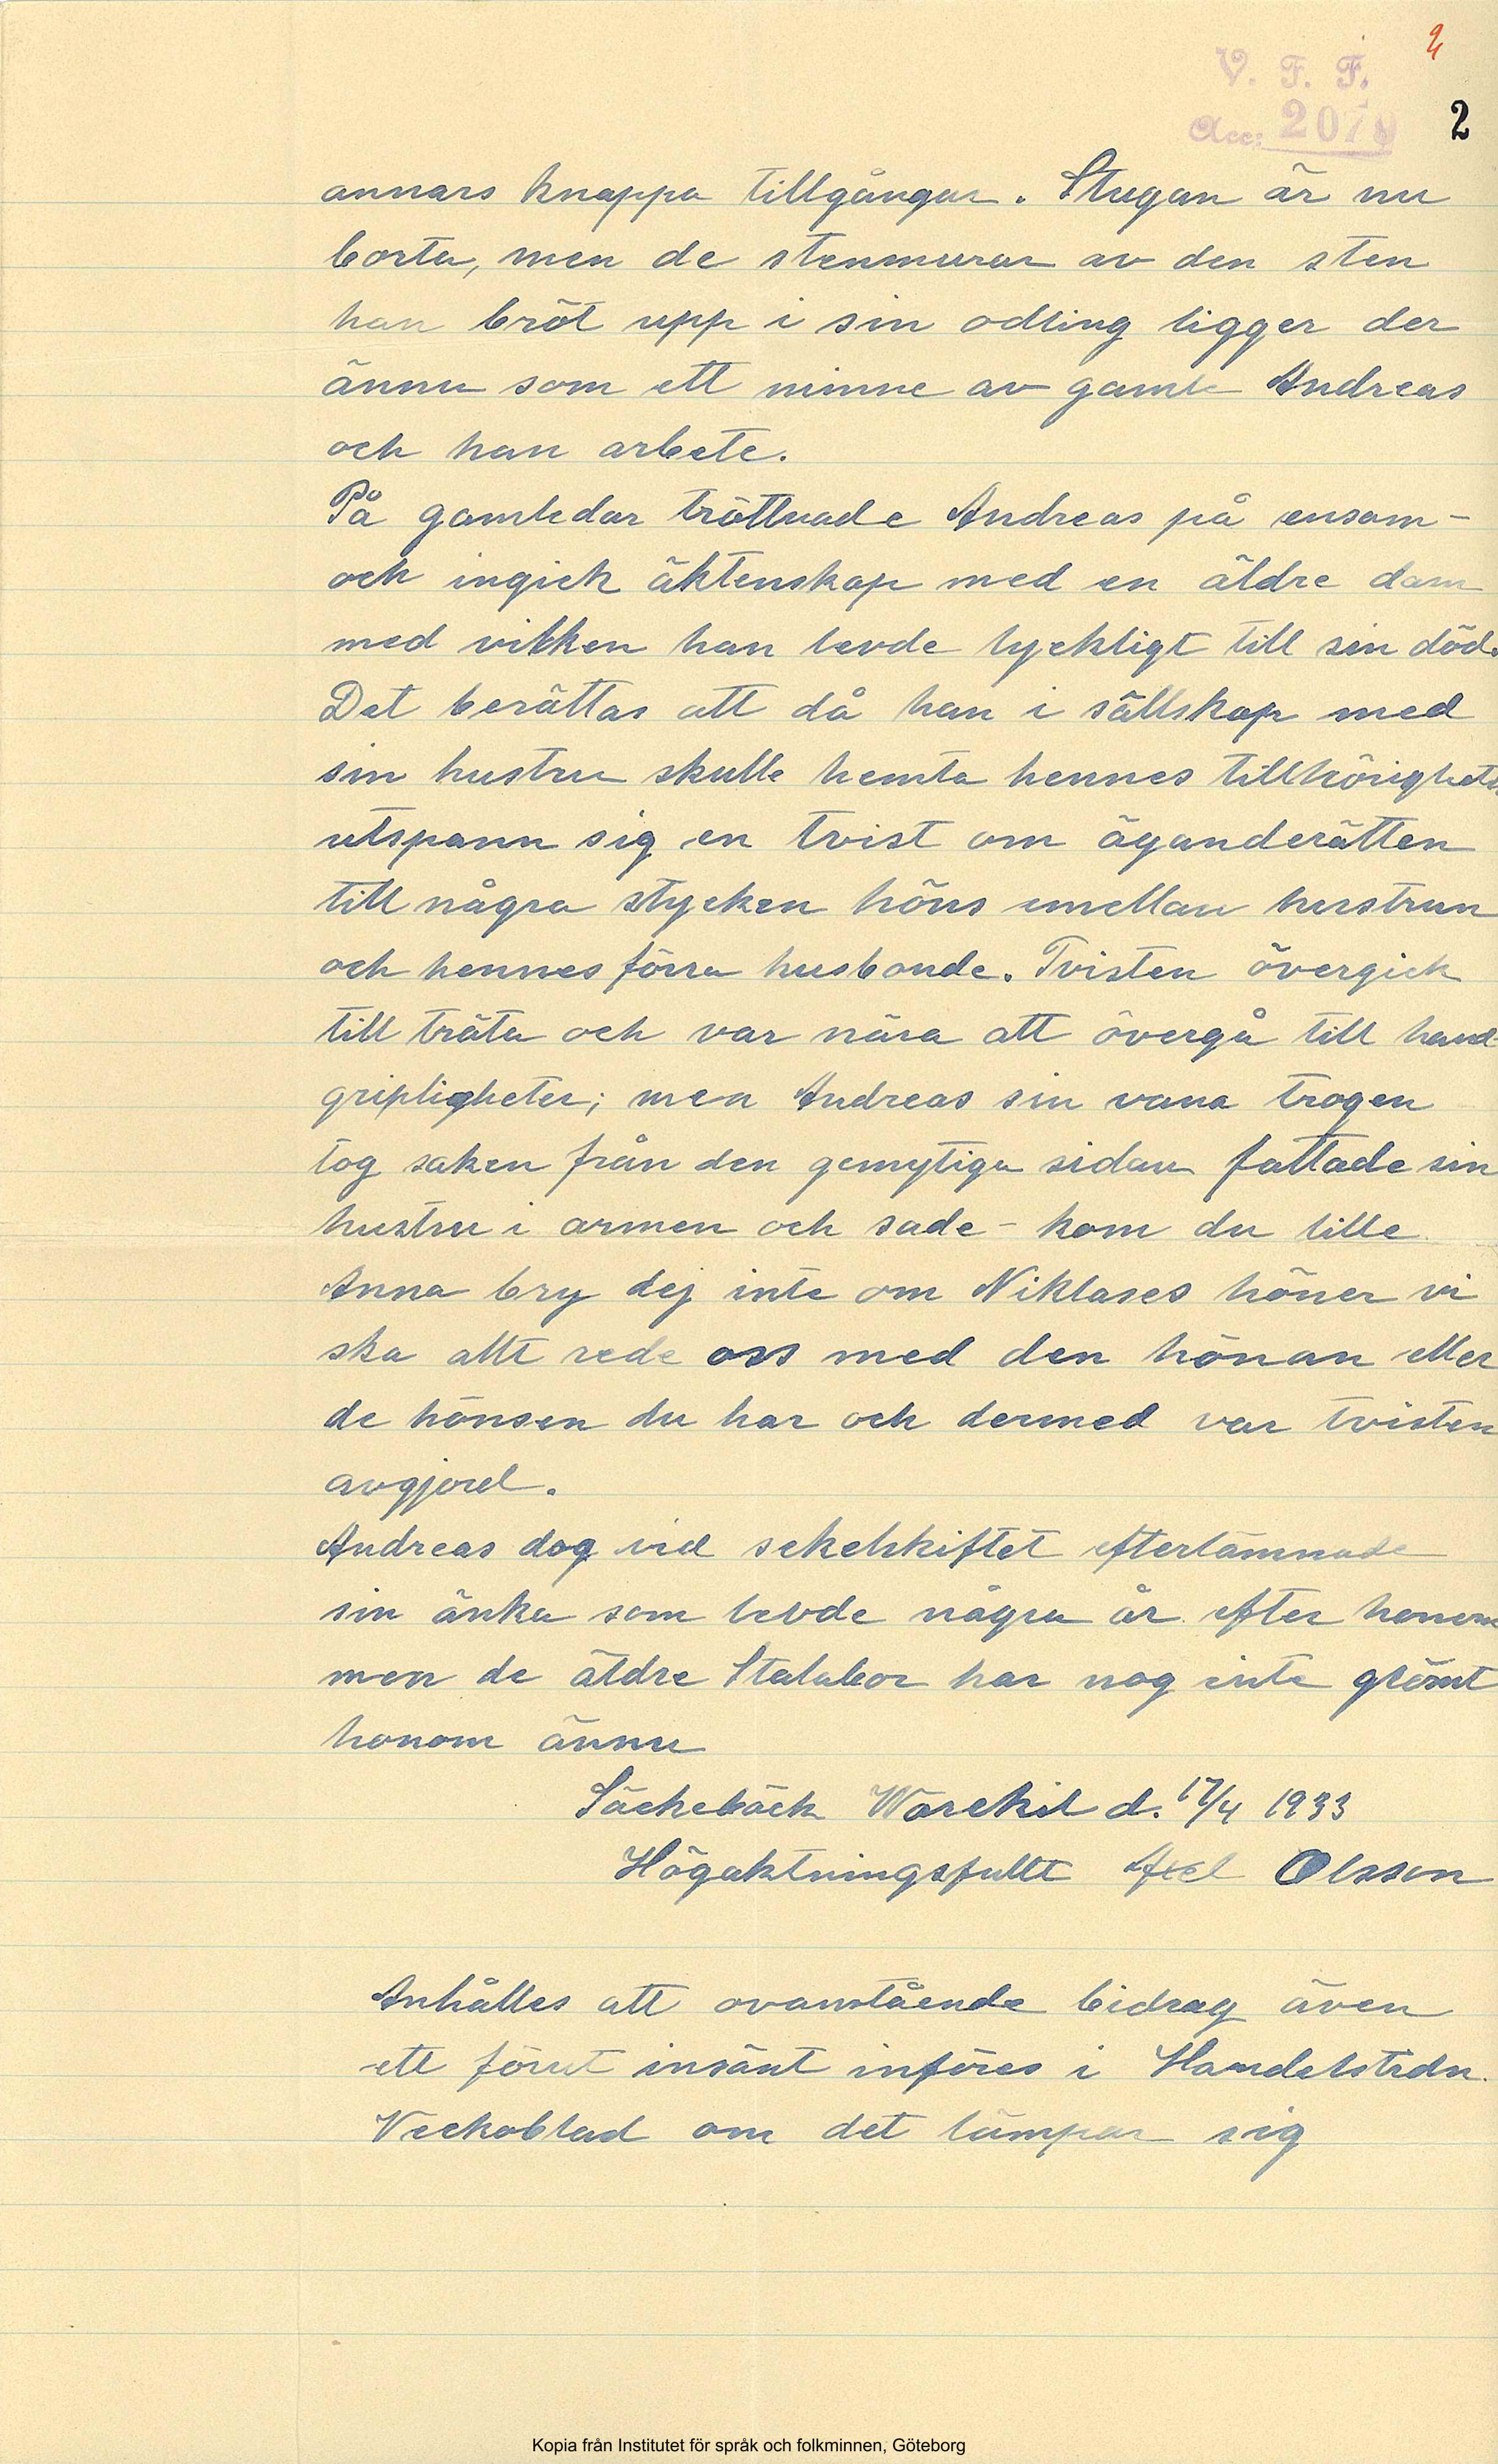 V. F. F.
Acc: 2079
2
annars knappa tillgångar. Stugan är nu
borta, men de stenmurar av den sten
han bröt upp i sin odling ligger der
ännu som ett minne av gamle Andreas
och han arbete.
På gamledar tröttnade Andreas på ensam-
och ingick äktenskap med en äldre dam
med vilken han levde lyckligt till sin död.
Det berättas att då han i sällskap med
sin hustru skulle hemta hennes tillhörigheter
utspann sig en tvist om äganderätten
till några stycken höns emellan hustrun
och hennes förra husbonde. Tvisten övergick
till träta och var nära att övergå till hand-
gripligheter; men Andreas sin vana trogen
tog saken från den gemytiga sidan fattade sin
hustru i armen och sade - kom du lille
Anna bry dej inte om Niklases höner vi
ska allt rede oss med den hönan eller
de hönsen du har och dermed var tvisten
avgjord.
Andreas dog vid sekelskiftet efterlämnade
sin änka som levde några år efter honom
men de äldre Stalabor har nog inte glömt
honom ännu
Säckebäck Warekil d. 17/4 1933
Högaktningsfullt Axel Olsson
Anhålles att ovanstående bidrag även
ett förut insänt införes i Handelstidn.
Veckoblad om det lämpar sig
Kopia från Institutet för språk och folkminnen, Göteborg